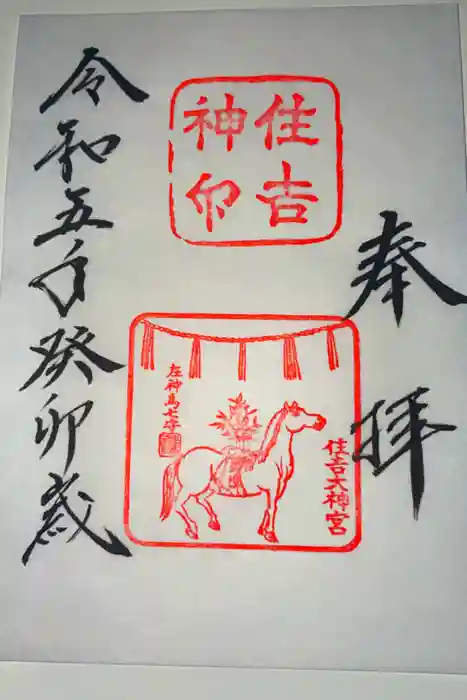 奉拝
住吉
神印
住吉大神宮
左神馬七歩
令和五年癸卯歳